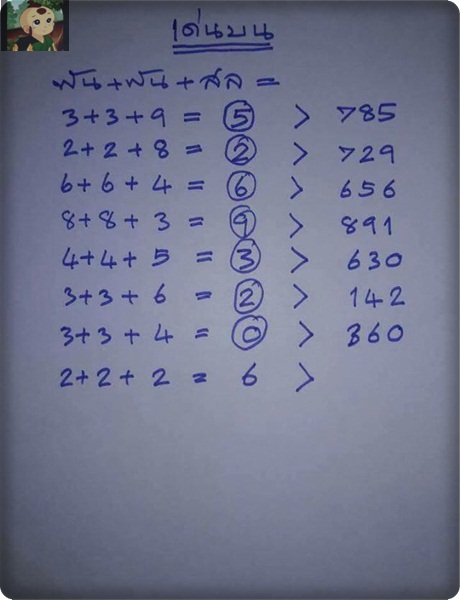 เด่นบน
พัน+พัน+สล =
3+3+9 = 5 > 785
2+2+8 = 2 > 729
6+6+4 = 6 > 656
8+8+3 = 9 > 891
4+4+5 = 3 > 630
3+3+6 = 2 > 142
3+3+4 = 0 > 360
2+2+2 = 6 >